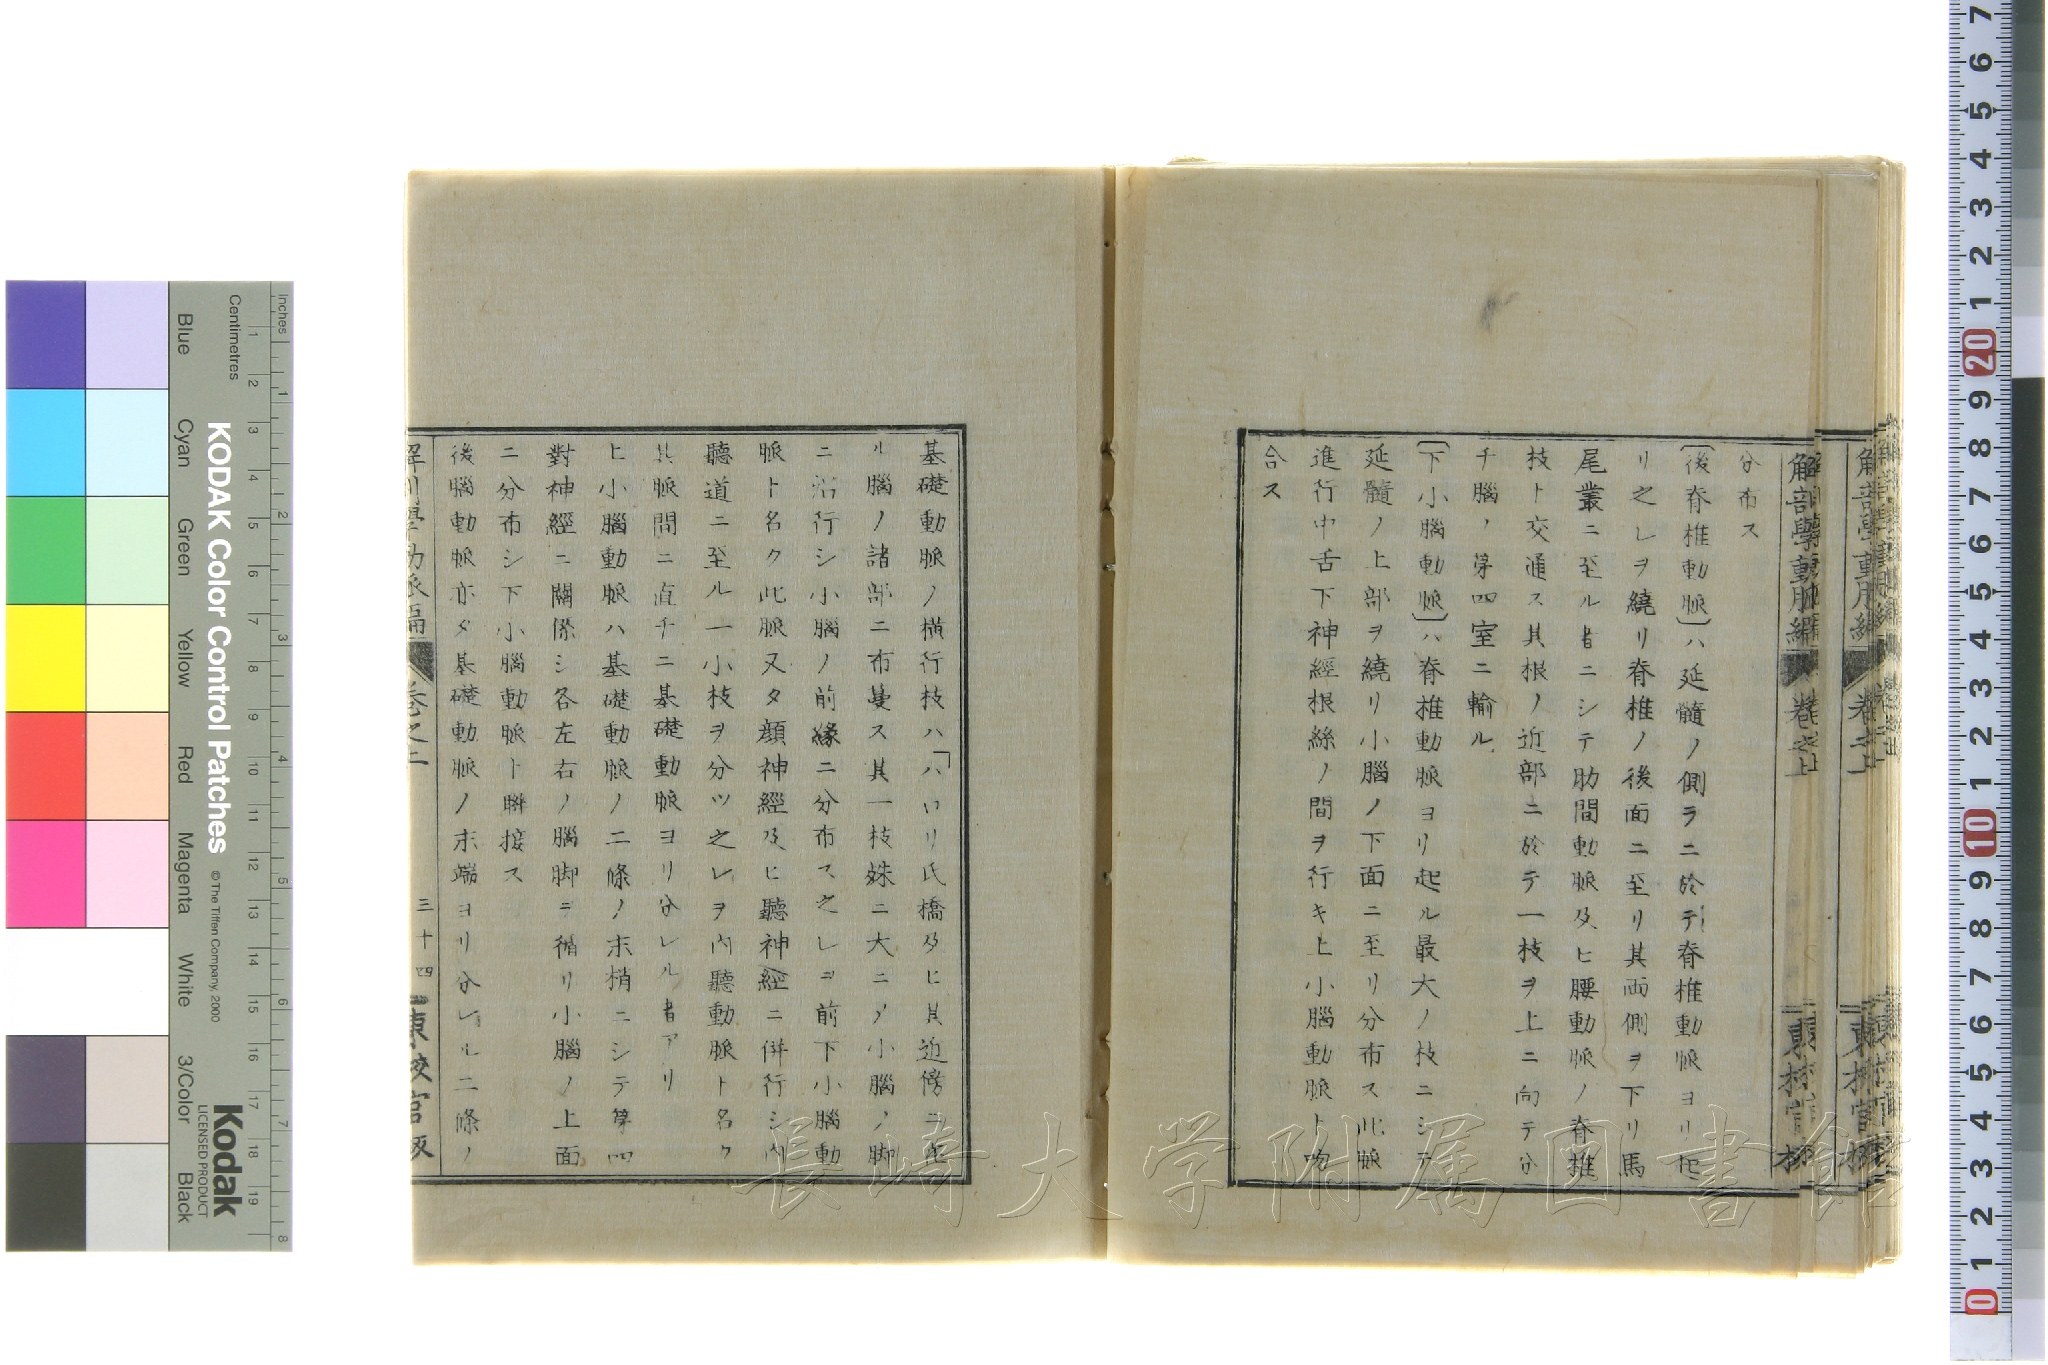 分布ス
〔後脊椎動脈〕ハ延髓ノ側ラニ於テ脊椎動脈ヨリ起
リ之レヲ繞リ脊椎ノ後面ニ至リ其両側ヲ下リ馬
尾叢ニ至ル者ニシテ肋間動脈及ヒ腰動脈ノ脊椎
枝ト交通ス其根ノ近部ニ於テ一枝ヲ上ニ向テ分
チ腦ノ第四室ニ輸ル
〔下小腦動脈〕ハ脊椎動脈ヨリ起ル最大ノ枝ニシテ
延髓ノ上部ヲ繞リ小腦ノ下面ニ至リ分布ス此脈
進行中舌下神經根絲ノ間ヲ行キ上小腦動脈ト吻
合ス
解剖學動脈編 卷之上
基礎動脈ノ横行枝ハ「ハロリ氏橋及ヒ其近傍ニ在
ル腦ノ諸部ニ布蔓ス其一枝姝ニ大ニノ小腦ノ脚
ニ沿行シ小腦ノ前縁ニ分布ス之レヲ前下小腦動
脈ト名ク此脈又タ顔神經及ヒ聽神經ニ併行シ内
聽道ニ至ル一小枝ヲ分ツ之レヲ内聽動脈ト名ク
其脈間ニ直チニ基礎動脈ヨリ分レル者アリ
上小腦動脈ハ基礎動脈ノ二條ノ末梢ニシテ第四
對神經ニ關係シ各左右ノ腦脚ヲ循リ小腦ノ上面
ニ分布シ下小腦動脈ト聯接ス
後腦動脈亦タ基礎動脈ノ末端ヨリ分レル二條ノ
解剖學動脈編 卷之上 三十四 東校官版
KODAK Color Control Patches
© The Tiffen Company, 2000
Kodak
LICENSED PRODUCT
Inches
Centimetres
Blue Cyan Green Yellow Red Magenta White 3/Color Black
長崎大学附属図書館